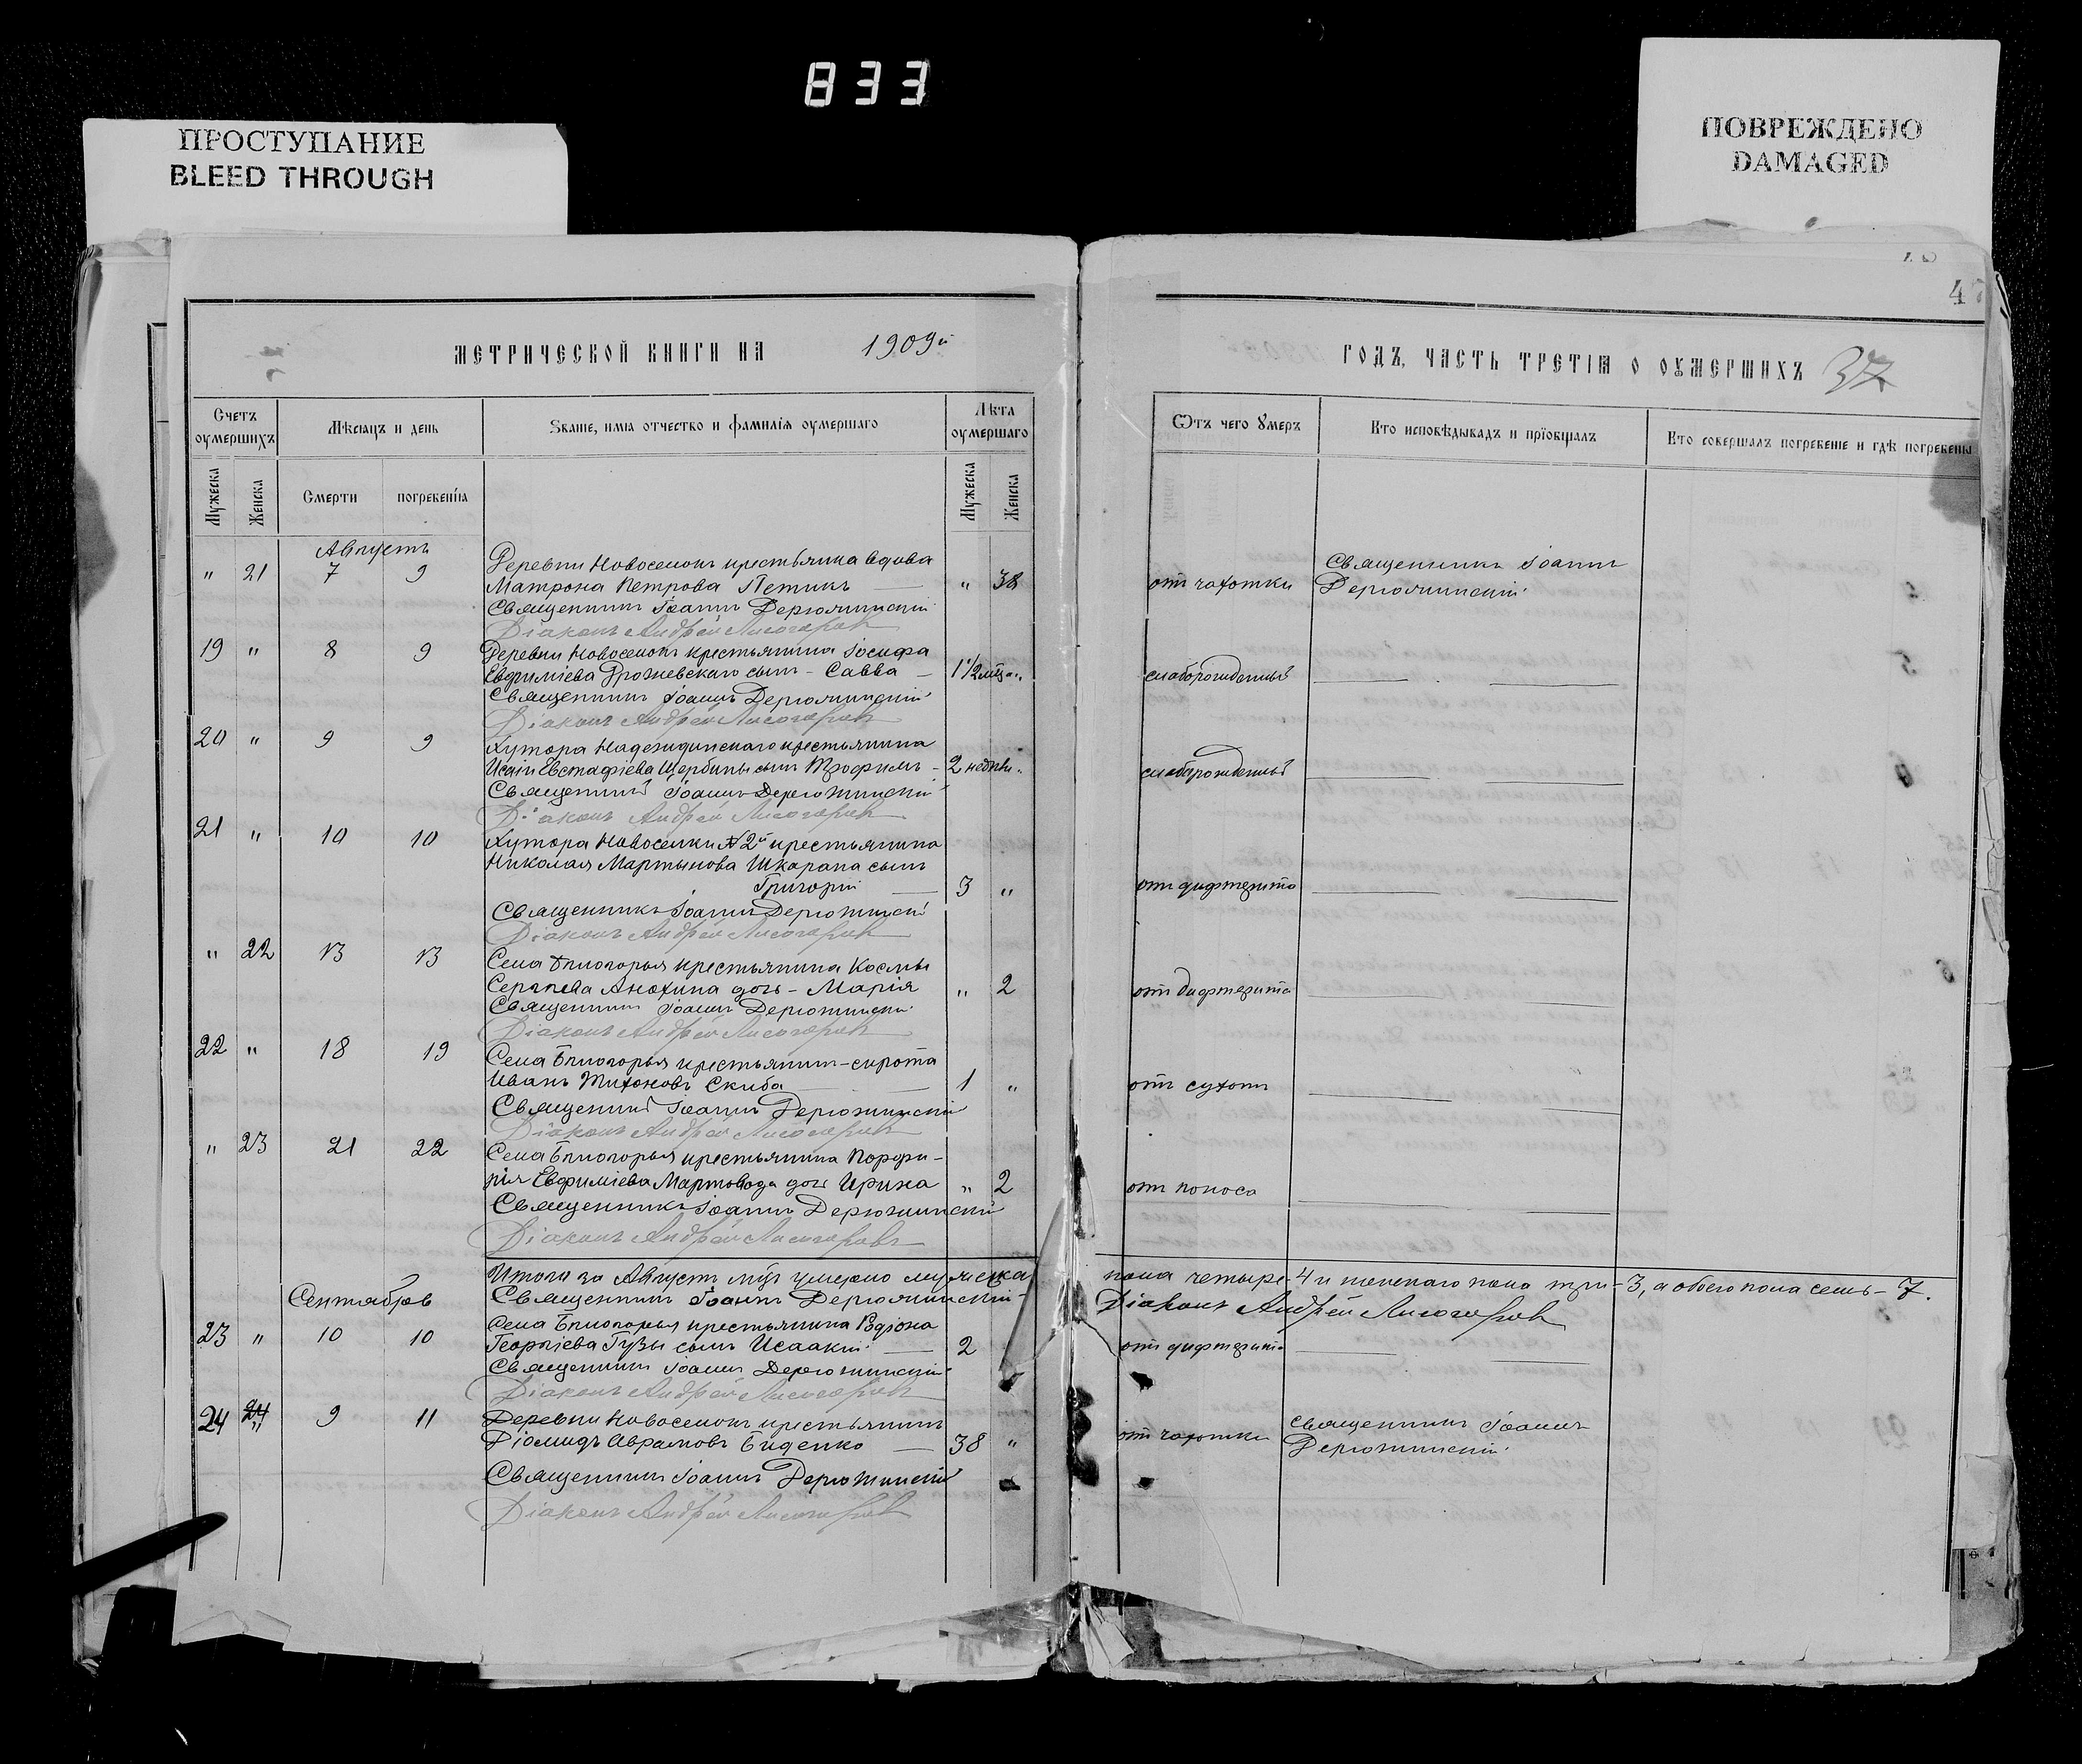 833
ПРОСТУПАНИЕ
BLEED THROUGH
ПОВРЕЖДЕНО
DAMAGED
МЕТРИЧЕСКОЙ КНИГИ НА 1909й
Счетъ оумершихъ
Мѣсяцъ и день
Званіе, имя отчество и фамилія оумершаго
Лѣта оумершаго
Мужеска
Женска
Смерти
погребенія
Мужеска
Женска
Августъ
" 21 7 9 Деревни Новоселокъ крестьянина вдова
Матрона Петрова Петикъ — " 38
Священникъ Іоаннъ Дерюжинскій
Діаконъ Андрей Лисогоровъ
19 " 8 9 Деревни Новоселокъ крестьянина Іосифа
Евфиміева Дрожевскаго сынъ - Савва — 1 1/2 мца "
Священникъ Іоаннъ Дерюжинскій
Діаконъ Андрей Лисогоровъ
20 " 9 9 Хутора Надеждинскаго крестьянина
Исаіи Евстафіева Щербины сынъ Трофимъ - 2 недѣли "
Священникъ Іоаннъ Дерюжинскій
Діаконъ Андрей Лисогоровъ
21 " 10 10 Хутора Новоселки №2й крестьянина
Николая Мартынова Шкарапа сынъ
Григорій — 3 "
Священникъ Іоаннъ Дерюжинскій
Діаконъ Андрей Лисогоровъ
" 22 13 13 Села Бѣлогорья крестьянина Космы
Анохина дочь - Марія " 2
Священникъ Іоаннъ Дерюжинскій
Діаконъ Андрей Лисогоровъ
22 " 18 19 Села Бѣлогорья крестьянинъ-сирота
Иванъ Тихоновъ Скиба — 1 "
Священникъ Іоаннъ Дерюжинскій
Діаконъ Андрей Лисогоровъ
" 23 21 22 Села Бѣлогорья крестьянина Порфи-
рія Евфиміева дочь Ирина " 2
Священникъ Іоаннъ Дерюжинскій
Діаконъ Андрей Лисогоровъ
Итого за Августъ мцъ умерло мужеска
Сентябрь
Священникъ Іоаннъ Дерюжинскій
23 " 10 10 Села Бѣлогорья крестьянина Родіона
Георгіева Гузы сынъ Исаакій — 2
Священникъ Іоаннъ Дерюжинскій
Діаконъ Андрей Лисогоровъ
24 " 9 11 Деревни Новоселокъ крестьянинъ
Діомидъ Аврамовъ Биденко — 38 "
Священникъ Іоаннъ Дерюжинскій
Діаконъ Андрей Лисогоровъ
47
ГОДЪ, ЧАСТЬ ТРЕТІЯ О ОУМЕРШИХЪ 37
Ѿтъ чего Умеръ
Кто исповѣдывалъ и пріобщалъ
Кто совершалъ погребеніе и гдѣ погребены
Священникъ Іоаннъ
отъ чахотки Дерюжинскій
слаборожденный
слаборожденный
отъ дифтерита
отъ дифтерита
отъ сухотъ
отъ поноса
пола четыре - 4 и женскаго пола три - 3, а обоего пола семь - 7.
Діаконъ Андрей Лисогоровъ
отъ дифтерита
Священникъ Іоаннъ
отъ чахотки Дерюжинскій